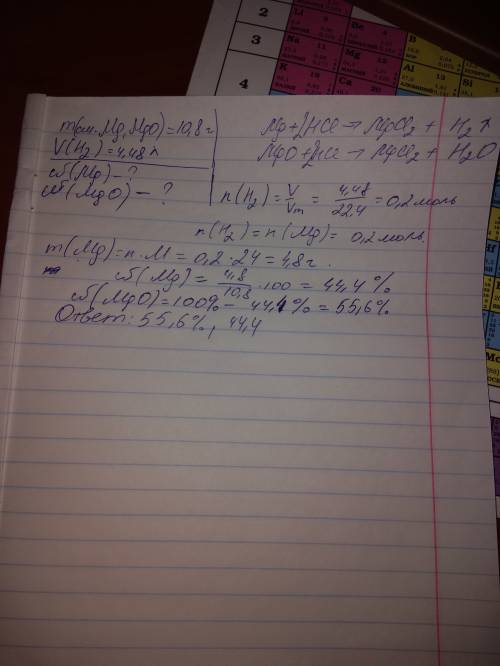 2 Li 3 Be 4
3 Na 11 Mg 12 B
4 K 19 Ca 20 Al Si
m(см. Mg, MgO) = 10,8 г
V(H₂) = 4,48 л
ω(Mg) - ?
ω(MgO) - ?
Mg + 2HCl → MgCl₂ + H₂↑
MgO + 2HCl → MgCl₂ + H₂O
n(H₂) = V/Vm = 4,48/22,4 = 0,2 моль
n(H₂) = n(Mg) = 0,2 моль.
m(Mg) = n · M = 0,2 · 24 = 4,8 г.
ω(Mg) = 4,8/10,8 · 100 = 44,4 %
ω(MgO) = 100% - 44,4% = 55,6%
Ответ: 55,6%, 44,4